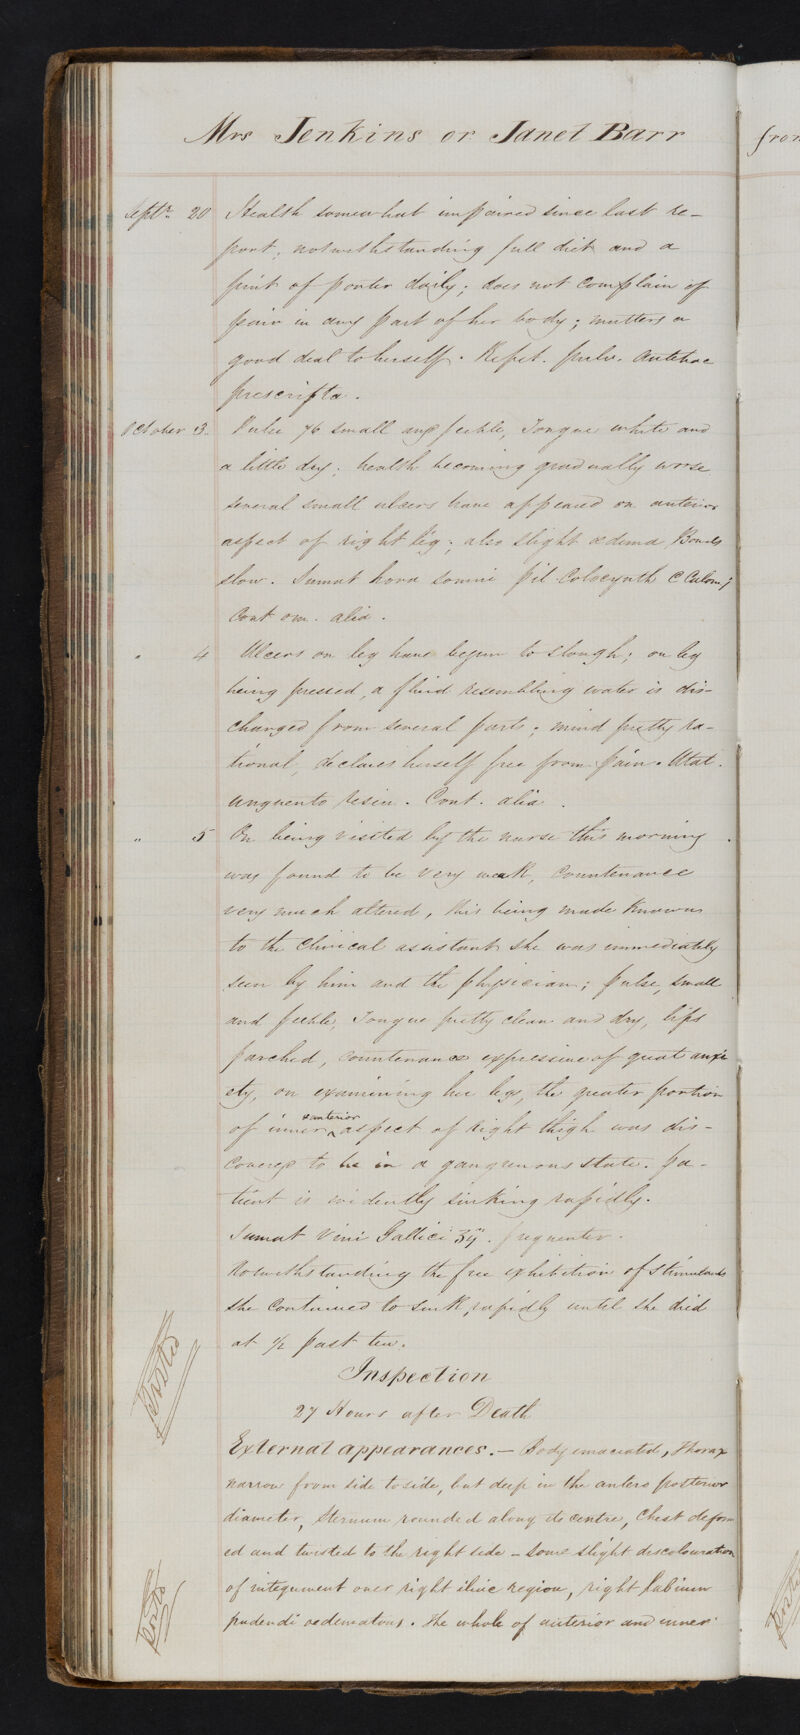 Mrs Jenkins or Janet Barr
from
Septr. 20 Health somewhat impaired since last re-
port, notwithstanding full diet and a
pint of porter daily; does not complain of
pain in any part of her body; mutters a
good deal to herself. Repet. pulv. antehac
prescripta.
October 3. Pulse 76 small and feeble, Tongue white and
a little dry; health becoming gradually worse
several small ulcers have appeared on anterior
aspect of right leg; also slight œdema Bowels
slow. Sumat hora somni pil. Colocynth c Calom;
Cont om. alia.
" 4 Ulcers on leg have begun to slough; on leg
being pressed, a fluid resembling water is dis-
charged from several parts; mind pretty ra-
tional, declares herself free from pain. Utat.
unguento resin. Cont. alia.
" 5 On being visited by the nurse this morning
was found to be very weak, Countenance
very much altered, this being made known
to the Clinical assistant she was immediately
seen by him and the physician; pulse, small
and feeble, Tongue pretty clean and dry, lips
parched, countenance expressive of great anxi
ety, on examining her legs, the greater portion
of inner & anterior aspect of right thigh was dis-
covered to be in a gangrenous state. Pa-
tient is evidently sinking rapidly.
Sumat Vini Gallici ʒij. frequenter.
Notwithstanding the free exhibition of stimulants
she continued to sink, rapidly until she died
at ½ past ten.
Posted
Inspection
27 Hours after Death
External appearances. — Body emaciated, Thorax
narrow from side to side, but deep in the antero posterior
diameter, Sternum rounded along its centre, Chest deform
ed and twisted to the right side – some slight discolouration
of integument over right iliac region, right labium
pudendi œdematous. The whole of anterior and inner
Posted
Posted